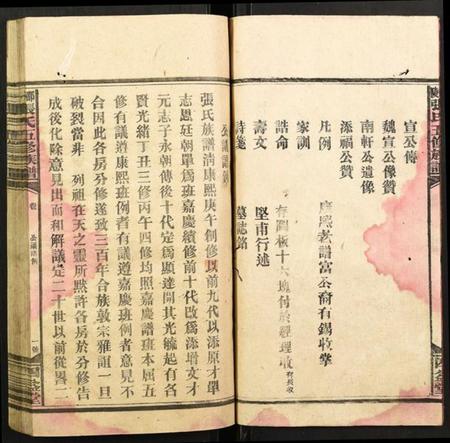 宣公傳
魏宣公像贊
南軒公遺像
添福公贊
凡例
家訓
誥命
壽文
詩箋
慶熙老譜富公裔有錫收掌
存圖板十六塊付於經理收
堅甫行述
墓誌銘
公議譜例
張氏族譜清康熙庚午創修以前九代以添原才單
志恩廷朝單爲班嘉慶續修前十代改爲添增文才
元志子永朝傳後十代定爲顯達開其光毓起有各
賢光緒丁丑三修丙午四修均照嘉慶譜班本屆五
修有議遵康熙班例者有議遵嘉慶班例者意見不
合因此各房分修遂致三百年合族敦宗雅誼一旦
破裂當非 列祖在天之靈所默許各房於分修告
成後化除意見出而和解議定二十世以前從舊二
張氏五修族譜
卷
公議譜例